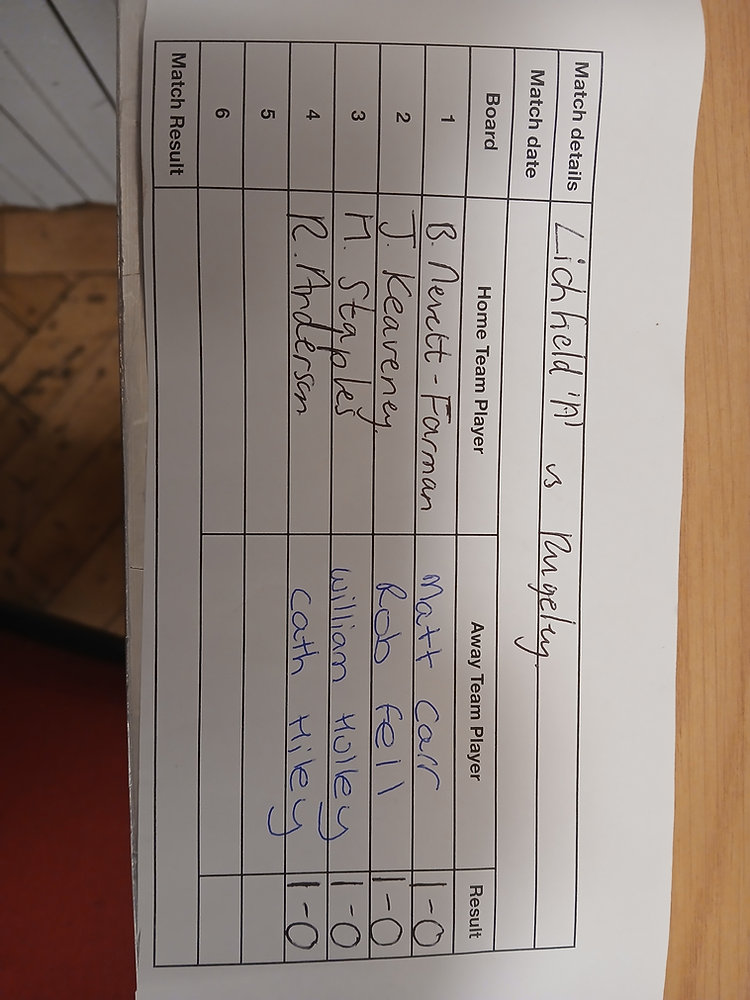 Match details Lichfield 'A' vs Rugeley.
Match date
Board Home Team Player Away Team Player Result
1 B. Nevett-Farman Matt Carr 1-0
2 J. Keaveney. Rob Fell 1-0
3 M. Staples William Holley 1-0
4 R. Anderson Cath Hiley 1-0
5
6
Match Result